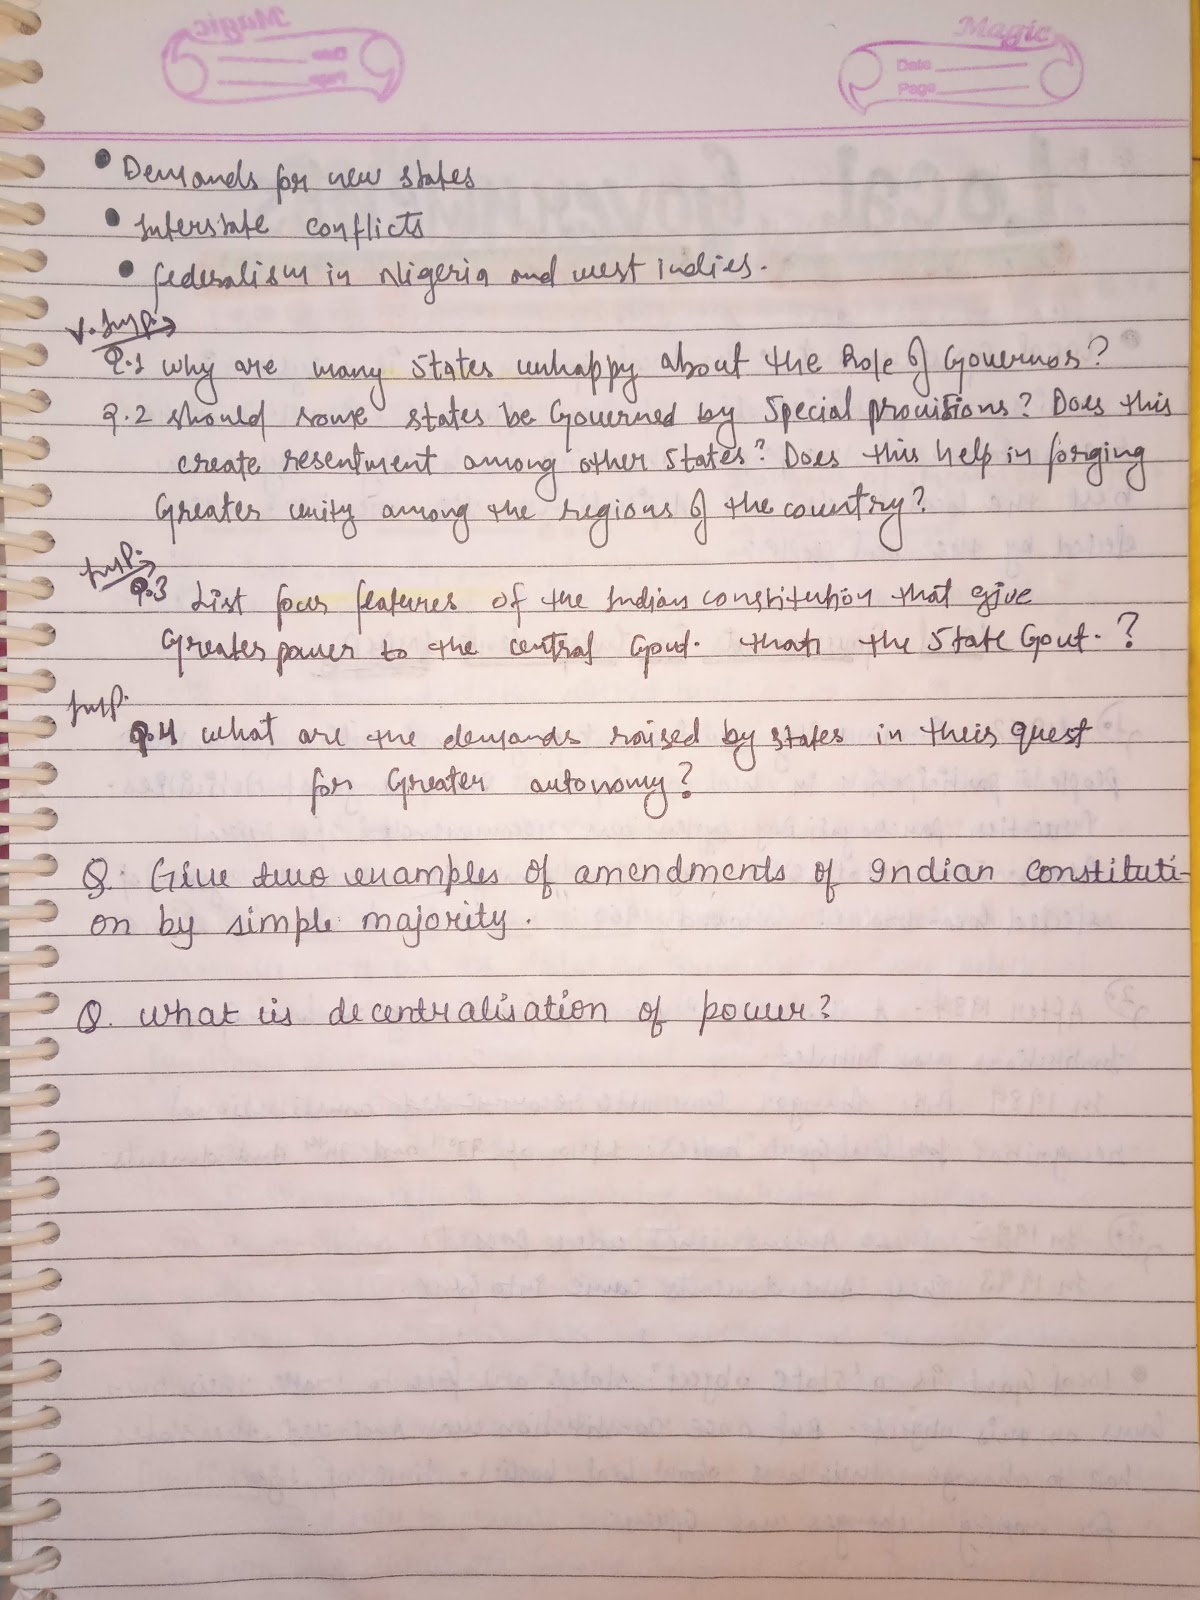 Magic
Date
Page
• Demands for new states
• Interstate conflicts
• federalism in Nigeria and west indies.
V. Imp.
Q.1 Why are many States unhappy about the Role of Governor?
Q.2 Should some states be Governed by Special provisions? Does this
create resentment among other States? Does this help in forging
Greater unity among the regions of the country?
Imp.
Q.3 List four features of the Indian constitution that give
Greater power to the central Govt. than the State Govt. ?
Imp.
Q.4 What are the demands raised by states in their quest
for Greater autonomy?
Q. Give two examples of amendments of Indian constituti-
on by simple majority.
Q. What is decentralisation of power?